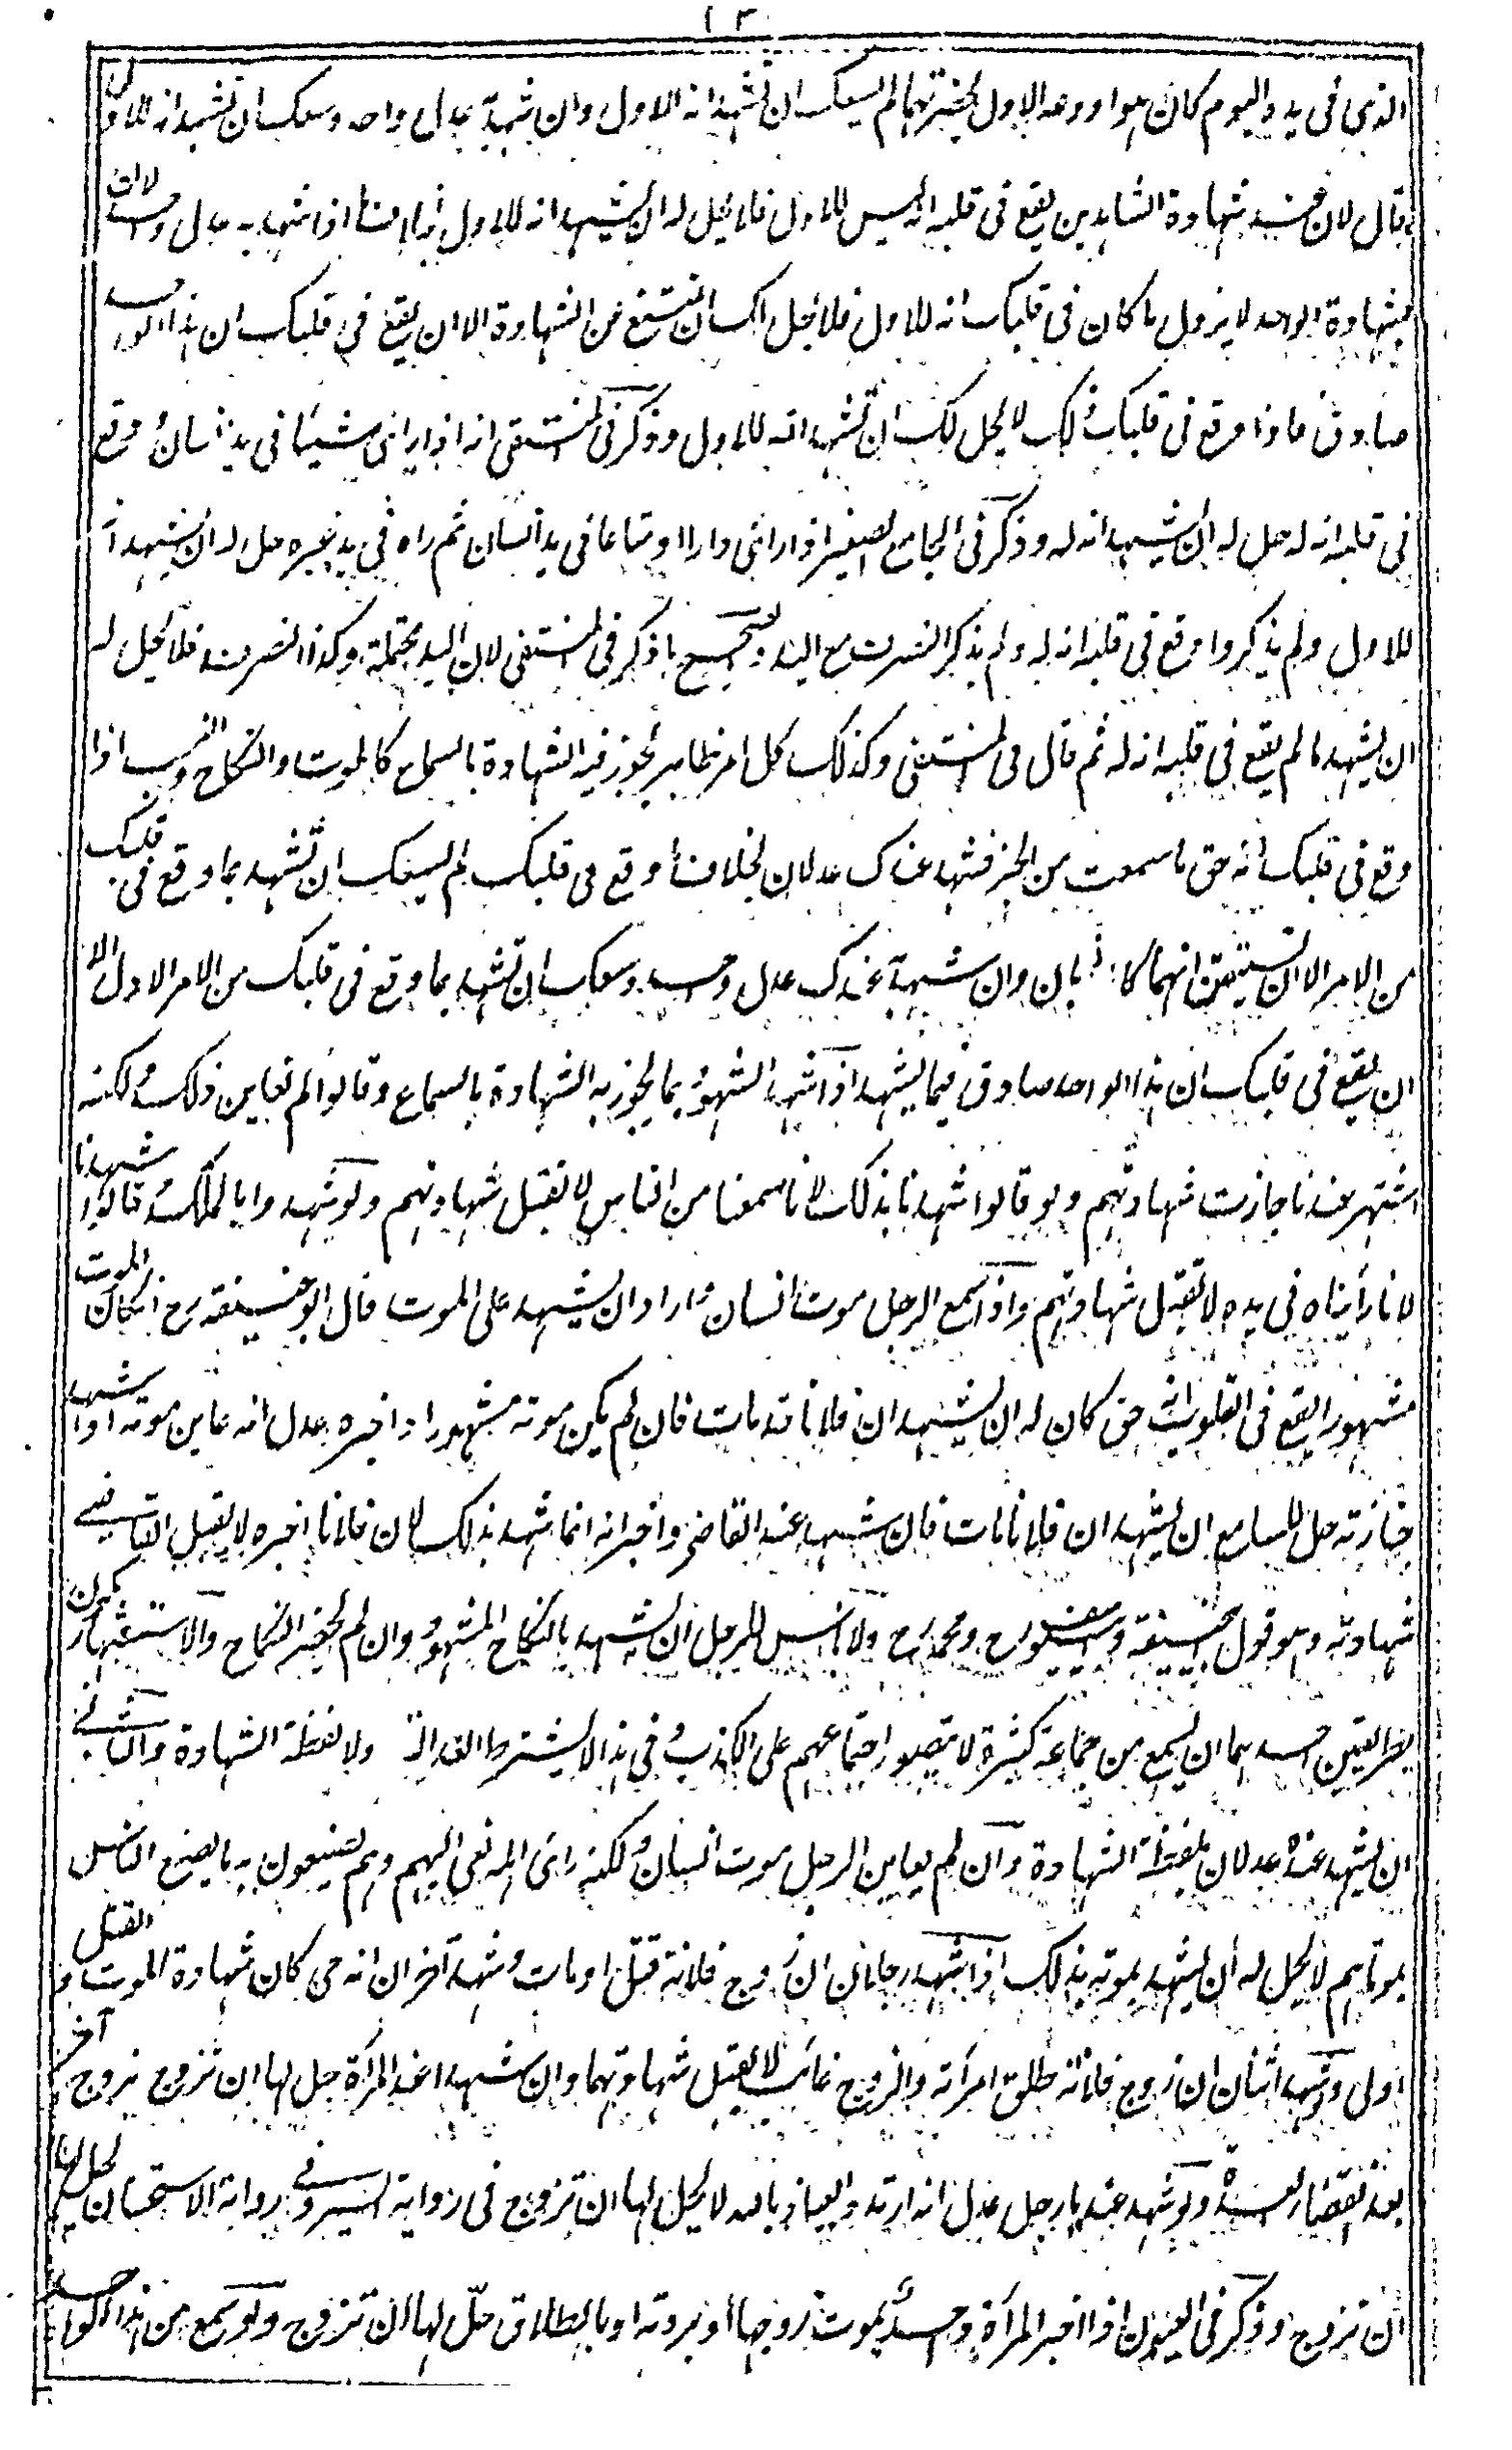 ١٣
الذي في يده اليوم كان هو اودعه الاول بحضرتهما لم يسعك ان تشهد انه للاول وان شهد عدل واحد وسعك ان تشهد انه للاول
قال لان عند شهادة الشاهدين يقع في قلبه انه ليس للاول فلا يحل له ان يشهد انه للاول اذا شهد به عدل واحد لان
بشهادة الواحد لا يزول ما كان في قلبك انه للاول فلا يحل لك ان تمتنع عن الشهادة الا ان يقع في قلبك ان هذا الواحد
صادق فاذا وقع في قلبك ذلك لا يحل لك ان تشهد انه للاول وذكر في المنتقى انه اذا راى شيئا في يد انسان ووقع
في قلبه انه له حل له ان يشهد انه له وذكر في الجامع الصغير اذا راى دارا او متاعا في يد انسان ثم راه في يد غيره حل له ان يشهد انه
للاول ولم يذكروا وقع في قلبه انه له ولم يذكر التصرف مع اليد والصحيح ما ذكر في المنتقى لان اليد محتملة وكذا التصرف فلا يحل له
ان يشهد ما لم يقع في قلبه انه له ثم قال في المنتقى وكذلك كل امر ظاهر يجوز فيه الشهادة بالسماع كالموت والنكاح والنسب اذا
وقع في قلبك انه حق ما سمعت من الخبر فشهد عندك عدلان بخلاف ما وقع في قلبك لم يسعك ان تشهد بما وقع في قلبك
من الامر الا ان تستيقن انهما كاذبان وان شهد به عندك عدل واحد وسعك ان تشهد بما وقع في قلبك من الامر الاول الا
ان يقع في قلبك ان هذا الواحد صادق فيما يشهد اذا شهد الشهود بما يجوز به الشهادة بالسماع وقالوا لم نعاين ذلك ولكنه
اشتهر عندنا جازت شهادتهم ولو قالوا شهدنا بذلك لانا سمعنا من الناس لا تقبل شهادتهم ولو شهدوا بالملك وقالوا شهدنا
لانا رأيناه في يده لا تقبل شهادتهم واذا سمع الرجل موت انسان واراد ان يشهد على الموت قال ابو حنيفة رح ان كان الموت
مشهورا يقع في القلوب انه حق كان له ان يشهد ان فلانا قد مات فان لم يكن موته مشهورا واخبره عدل انه عاين موته او شهد
جنازته حل للسامع ان يشهد ان فلانا مات فان شهد عند القاضي واخبر انه انما شهد بذلك لان فلانا اخبره لا يقبل القاضي
شهادته وهو قول ابي حنيفة وابي يوسف رح ومحمد رح ولا باس للرجل ان يشهد بالنكاح المشهور وان لم يحضر النكاح والاشتهار يكون
بطريقين احدهما ان يسمع من جماعة كثيرة لا يتصور اجتماعهم على الكذب وفي هذا لا يشترط العدالة ولا لفظة الشهادة والثاني
ان يشهد عنده عدلان بلفظة الشهادة وان لم يعاين الرجل موت انسان ولكنه راى المه نعي اليهم وهم يصنعون به ما يصنع الناس
بموتاهم لا يحل له ان يشهد بموته بذلك اذا شهد رجلان ان زوج فلانة قتل او مات وشهد آخران انه حي كان شهادة الموت والقتل
اولى ولو شهد اثنان ان زوج فلانة طلق امرأته والزوج غائب لا تقبل شهادتهما وان شهدا عند المرأة حل لها ان تزوج بزوج آخر
بعد انقضاء العدة ولو شهد عندها رجل عدل انه ارتد والعياذ بالله لا يحل لها ان تزوج في رواية السير وفي رواية الاستحسان يحل لها
ان تزوج وذكر في العيون اذا اخبر المرأة واحد بموت زوجها او بردته او بالطلاق حل لها ان تزوج ولو سمع من هذا الواحد